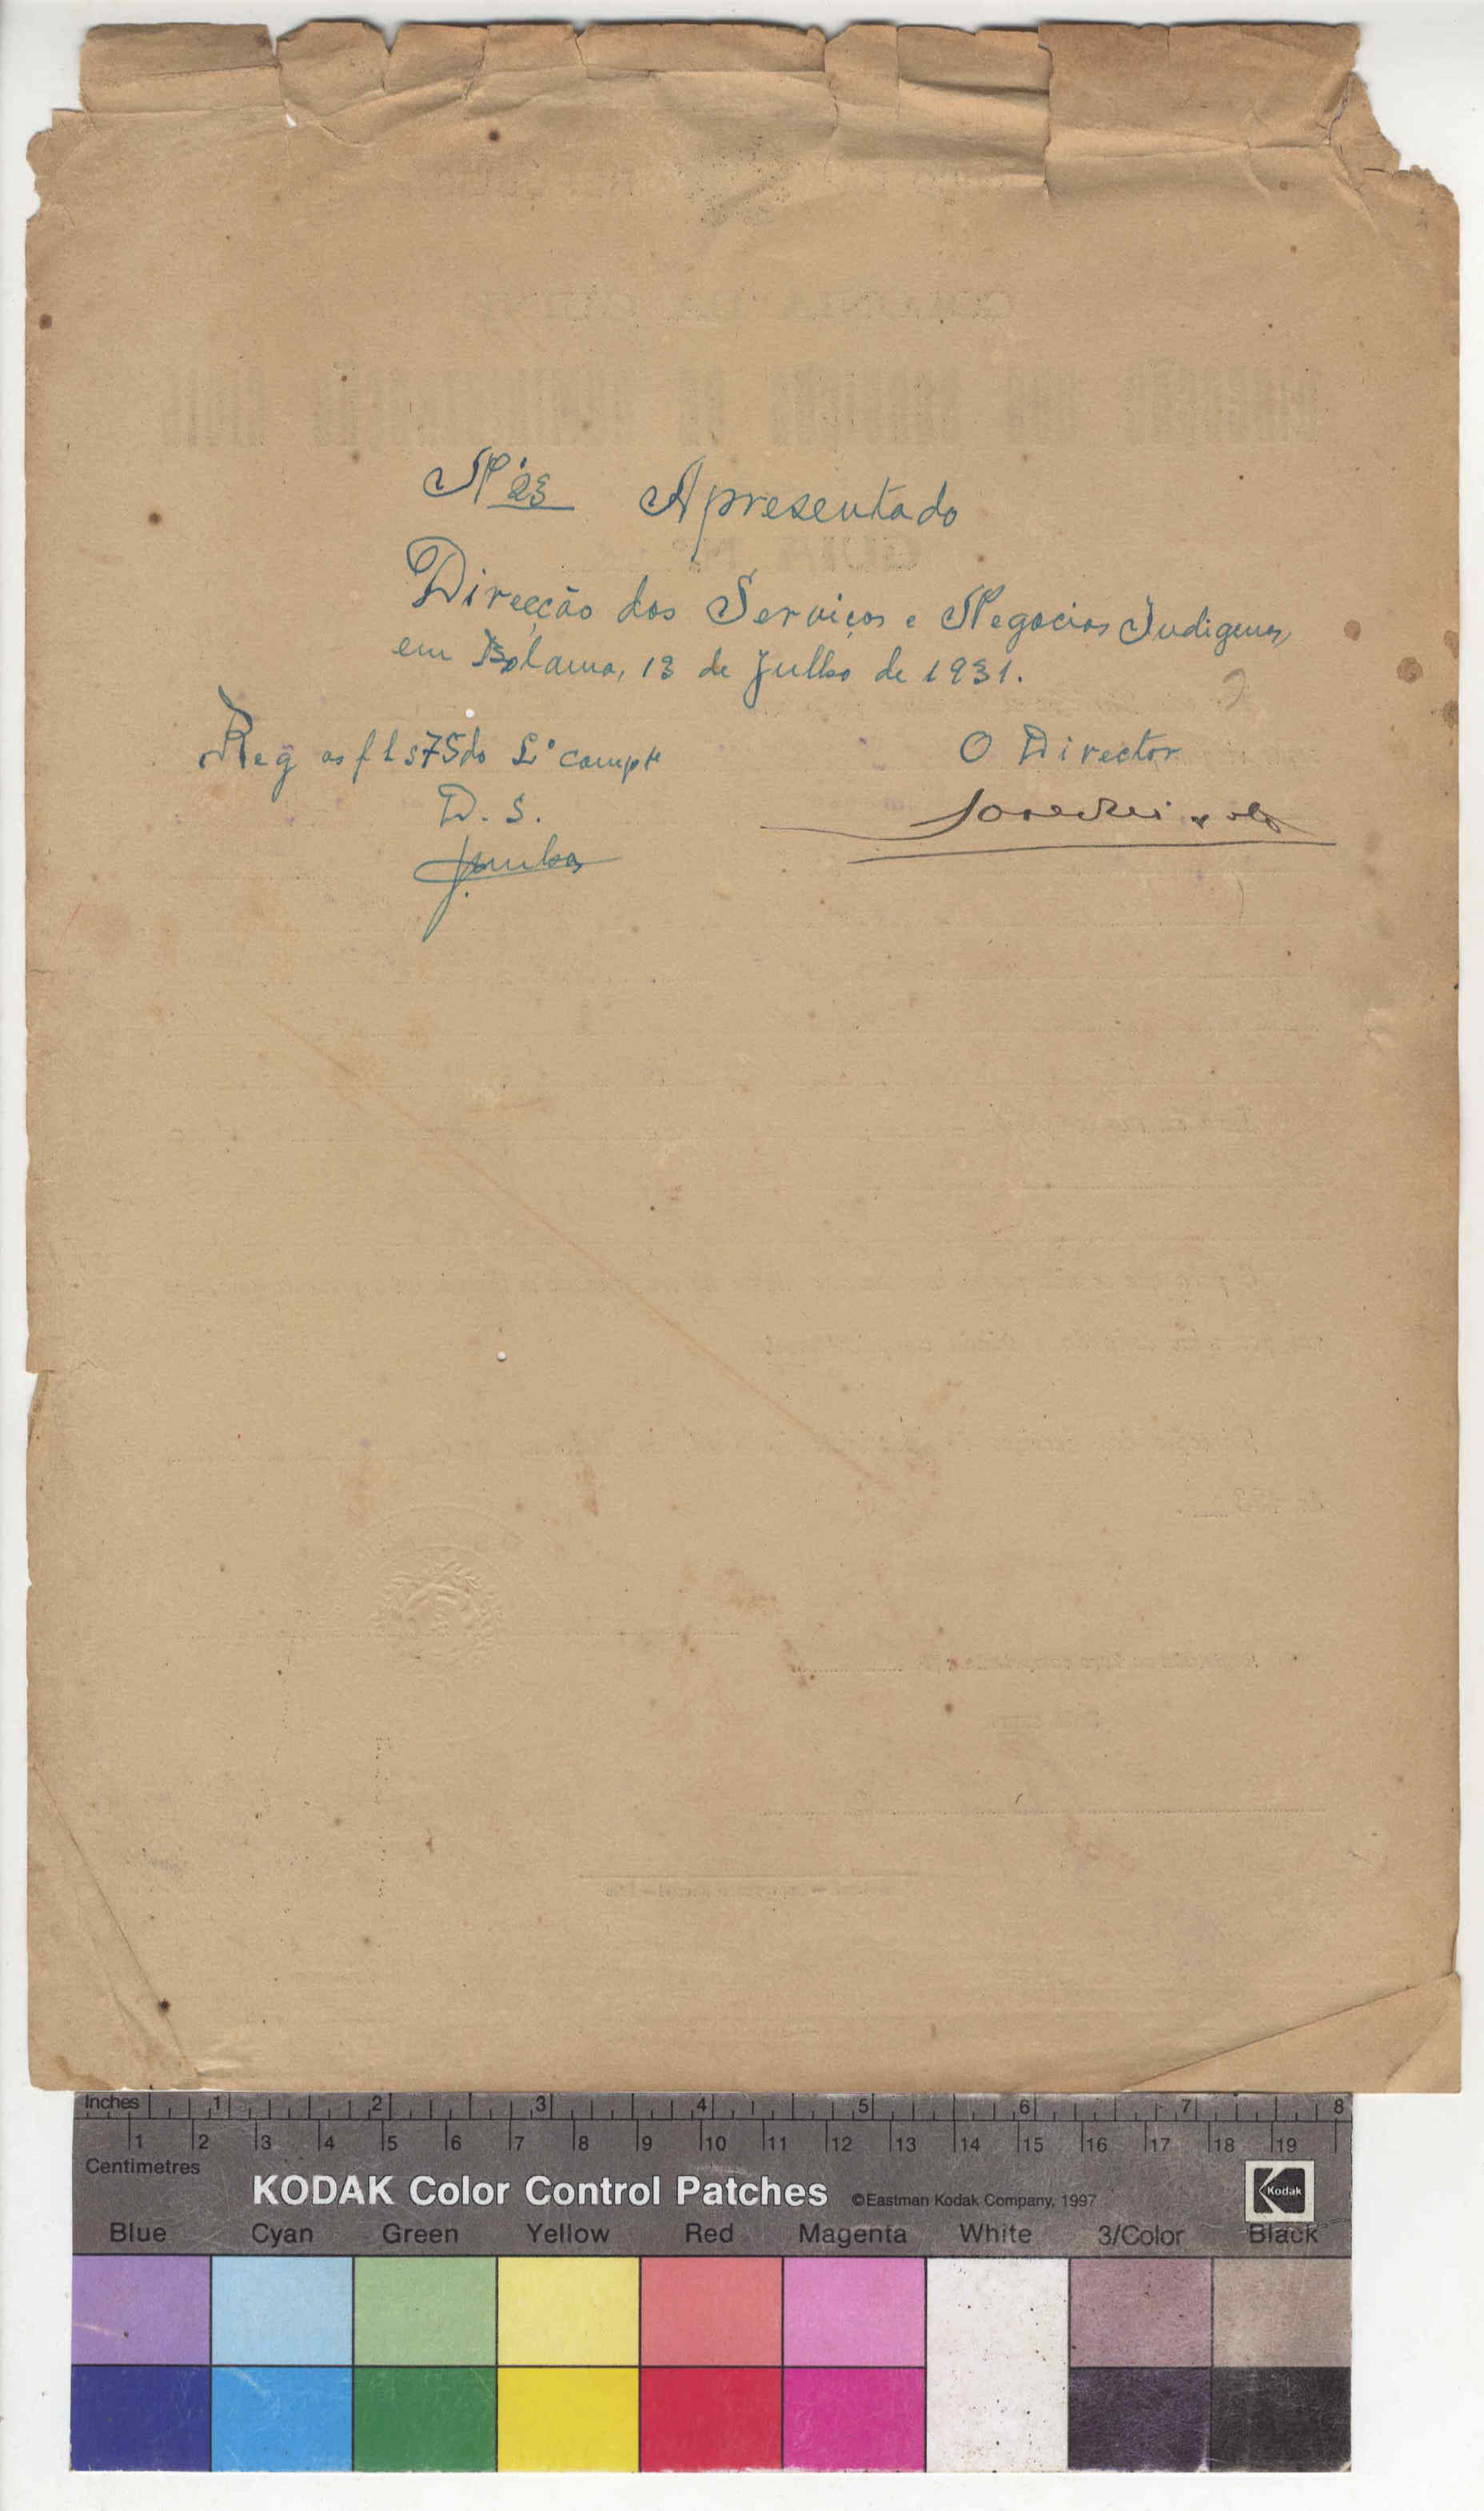 Nº 23 Apresentado
Direcção dos Serviços e Negocios Indigenas,
em Bolama, 13 de Julho de 1931.
Reg as fls 75 do Lº compte
O Director
D. S.
Inches 1 2 3 4 5 6 7 8
1 2 3 4 5 6 7 8 9 10 11 12 13 14 15 16 17 18 19
Centimetres
KODAK Color Control Patches ©Eastman Kodak Company, 1997 Kodak
Blue Cyan Green Yellow Red Magenta White 3/Color Black